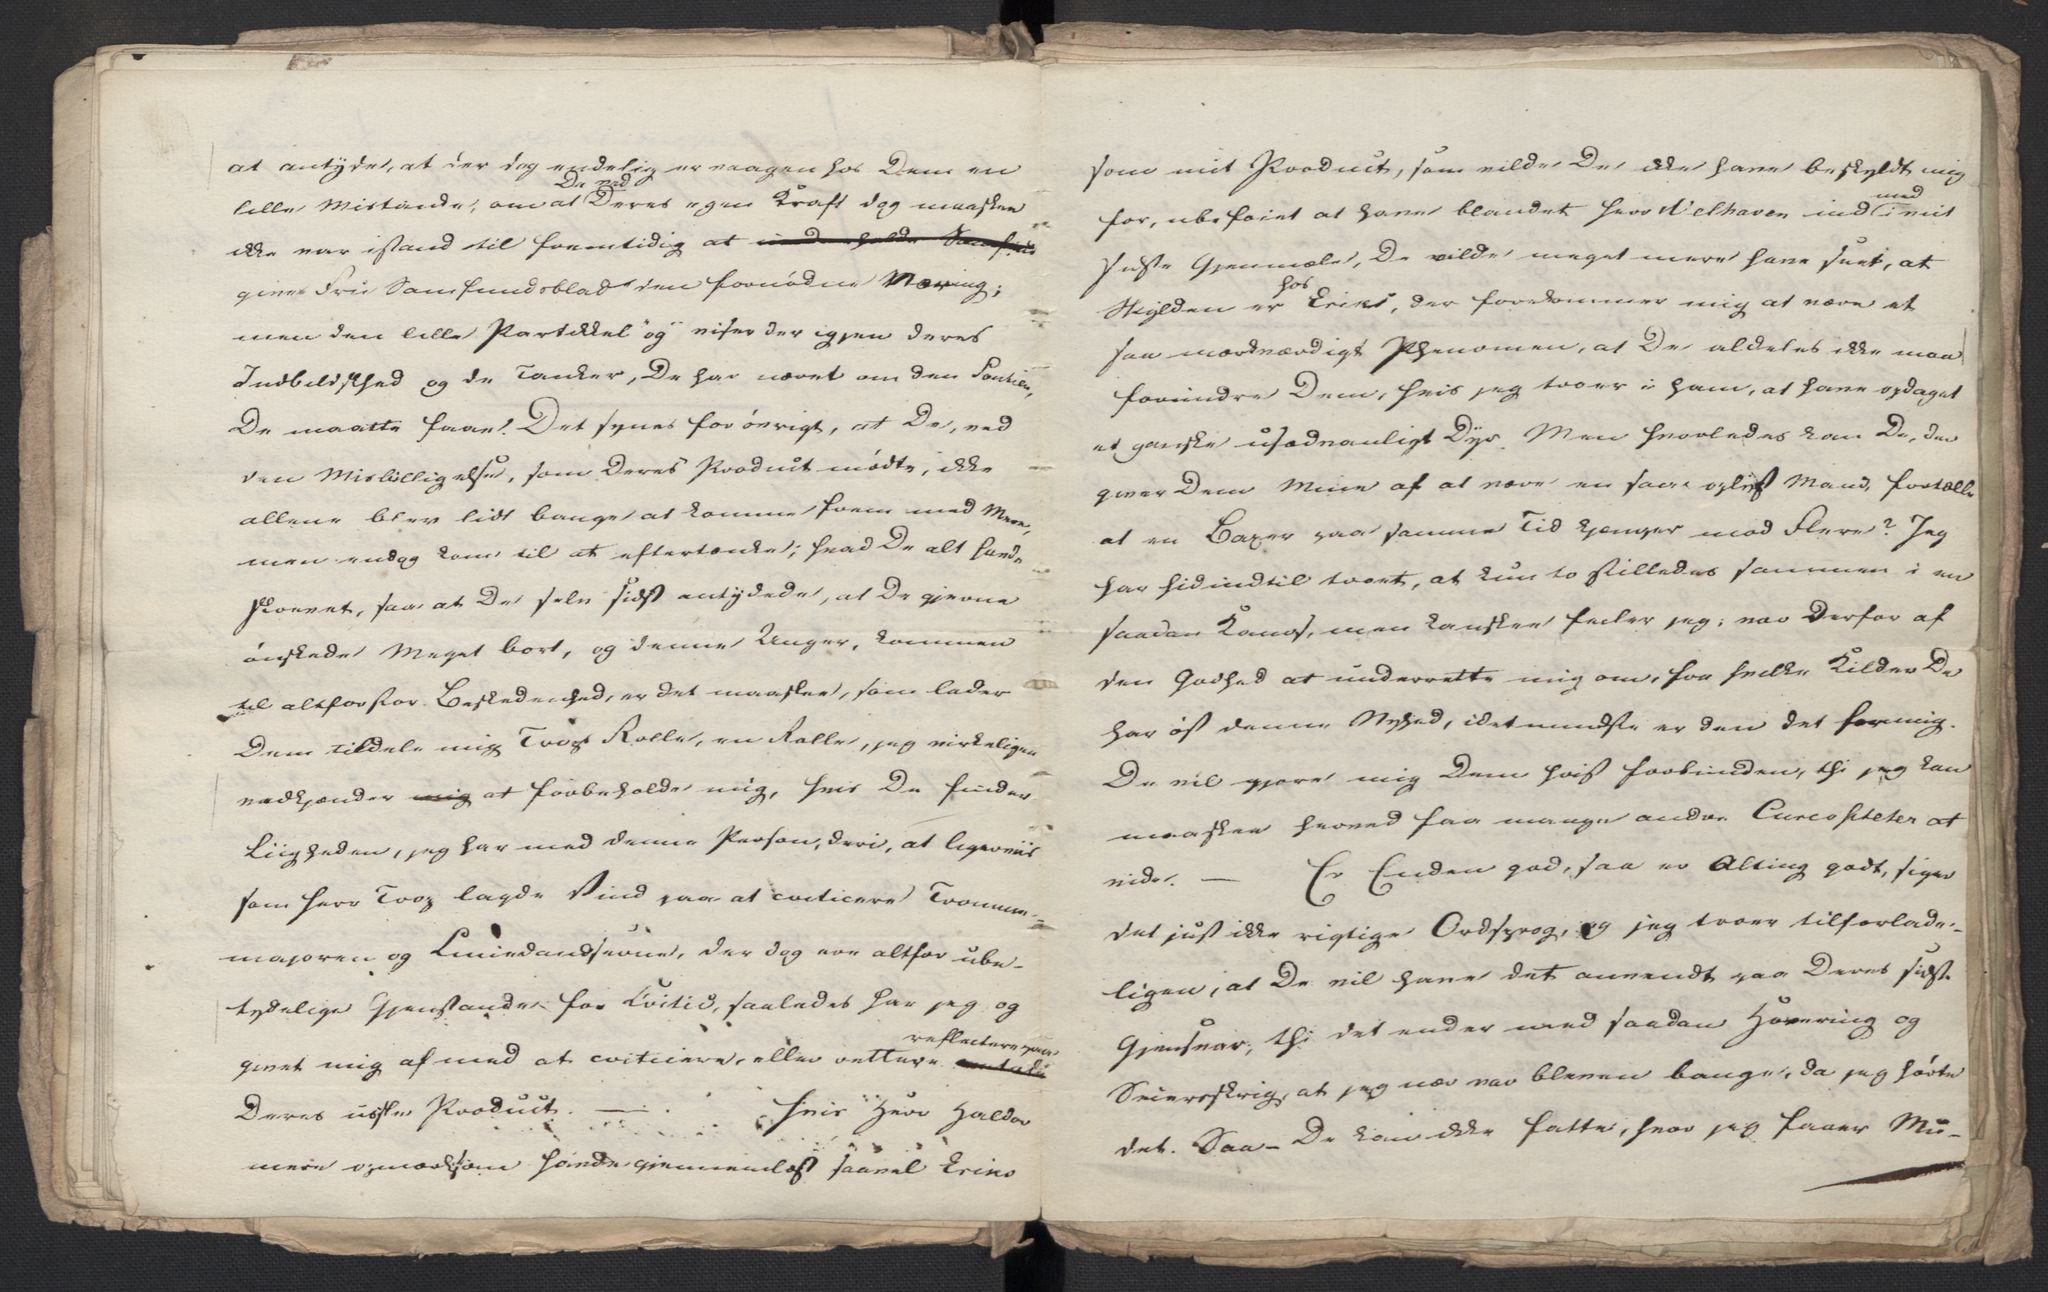 at antyde, at der dog endelig er vaagen hos Dem en
lille Mistanke, om at De ved Deres egen Kraft dog maaskee
ikke var istand til fremtidig at
give Fru Samfundsblad den fornødne Næring;
men den lille Partikkel "og" viser der igjen deres
Indbildskhed og de Tanker, De har næret om den
De maatte faae. Det synes forøvrigt, at De, ved
den Misbilligelse, som Deres Product mødte, ikke
allene blev lidt bange at komme frem med Mere,
men endog kom til at eftertænke, hvad De alt havde
skrevet, saa at De selv sidst antydede, at De gjerne
ønskede Meget bort, og denne Anger, kommen
til altfor stor Beskedenhed, er det maaskee, som lader
Dem tildele mig Trops Rolle, en Rolle, jeg virkeligen
vedkjender mig at forbeholde mig, hvis De finder
Liigheden, jeg har med denne Person, deri, at ligerviis
som Herr Trop lagde Vind paa at criticere Tromme-
majoren og Liniedandserne, der dog ere altfor ube-
tydelige Gjenstande for Critik, saaledes har jeg og
givet mig af med at criticere, eller rettere reflectere paa
Deres usle Product. — Hvis Herr Haldor
mere opmærksom havde gjennemlæst saavel Eriks
som mit Product, saa vilde De ikke have beskyldt mig
for, ubeføiet at have blandet Herr Welhaven ind med i mit
sidste Gjenmæle, De vilde meget mere have seet, at
Skylden er hos Erik, der forekommer mig at være et
saa mærkværdigt Phenomen, at De aldeles ikke maa
forundre Dem, hvis jeg troer i ham, at have opdaget
et ganske usædvanligt Dyr. Men hvorledes kan De, der
giver Dem Mine af at være en saa oplyst Mand, fortælle
at en Boxer paa samme Tid kjæmper mod Flere? Jeg
har hidindtil troet, at kun to stilledes sammen i en
saadan Kamp, men kanskee feiler jeg; vær derfor af
den Godhed at underrette mig om, fra hvilke Kilder De
har øst denne Nyhed, idetmindste er den det for mig.
De vil gjøre mig Dem høist forbunden, thi jeg kan
maaskee herved faa mange andre Curiositeter at
vide. — Er Enden god, saa er Alting godt, siger
det just ikke rigtige Ordsprog, og jeg troer tilforlade-
ligen, at De vil have det anvendt paa Deres sidste
Gjensvar, thi det ender med saadan Hovering og
Seiersskrig, at jeg nær var bleven bange, da jeg hørte
det. Saa – De kan ikke fatte, hvor jeg faaer Mu-